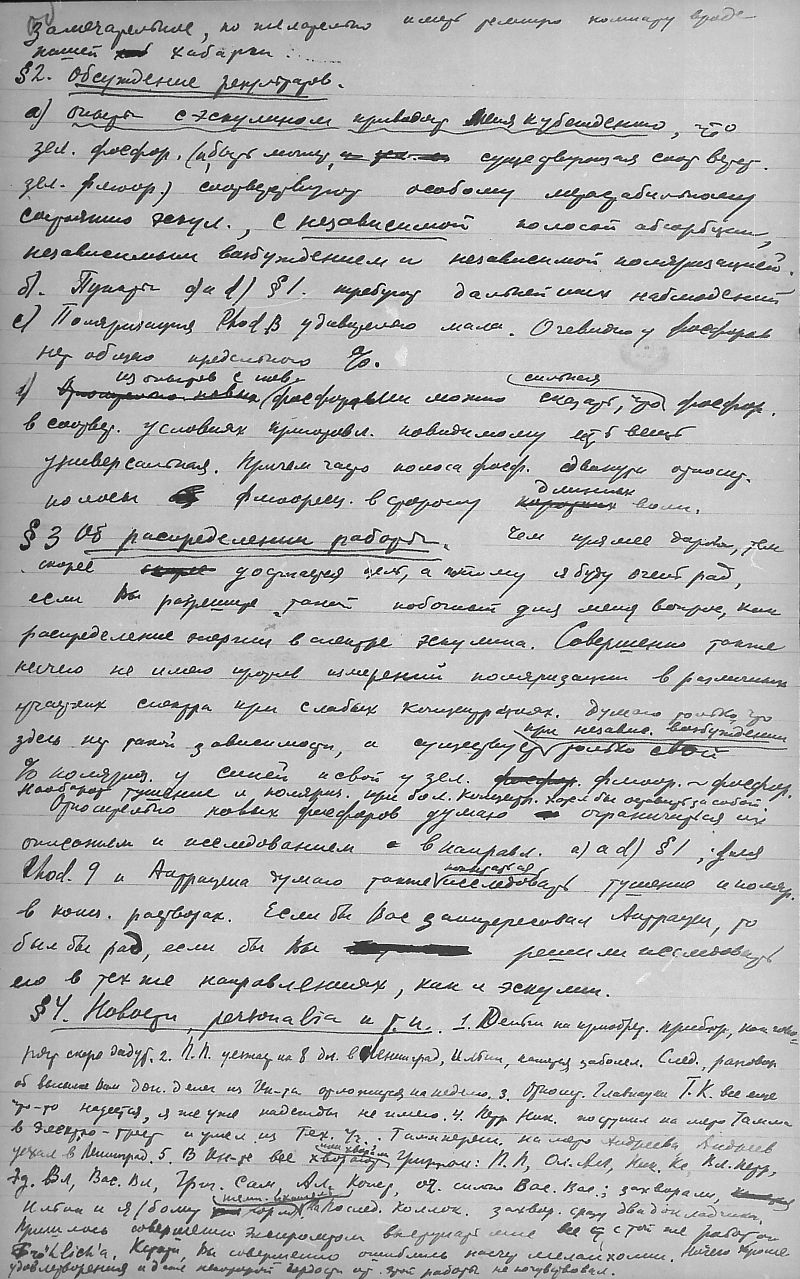 замечательное, но желательно иметь темную комнату вроде
нашей хибарки.....
§2. Обсуждение результатов.
а) Опыты с эскулином приводят меня к убеждению, что
зел. фосфор. (и быть может, существующая слаб. ветвь
зел. флюор.) соответствуют особому метастабильному
состоянию эскул., с независимой полосой абсорбции,
независимым возбуждением и независимой поляризацией.
б). Пункты a) и d) §1. требуют дальнейших наблюдений
c) Поляризация Rhod. B удивительно мала. Очевидно у фосфоров
нет общего предельного %.
из опытов с нов. сильная
d) Относительно новых фосфорами можно сказать, что фосфор.
в соответ. условиях приготовл. повидимому есть вещь
универсальная. Причем часто полоса фосф. сдвинута относит.
длинных
полосы флюоресц. в сторону коротких волн.
§3 Об распределении работы. Чем прямее дорога, тем
скорее достигается цель, а потому я буду очень рад,
если Вы разрешите такой побочный для меня вопрос, как
распределение энергии в спектре эскулина. Совершенно также
ничего не имею против измерений поляризации в различных
участках спектра при слабых концентрациях. Думаю только, что
при независ. возбуждении
здесь нет такой зависимости, а существует только свой
% поляриз. у синей и свой у зел. фосфор. флюор. ~ фосфор.
Наоборот тушение и поляриз. при бол. концентр. хорошо бы оставить за собой.
Относительно новых фосфоров думаю ограничиться их
описанием и исследованием в направл. a) и d) §1; для
попытаться
Rhod. 9 и Антрацена думаю также исследовать тушение и поляр.
в конц. растворах. Если бы Вас заинтересовал Антрацен, то
был бы рад, если бы Вы решили исследовать
его в тех же направлениях, как и эскулин.
§4. Новости, personalia и т.п. 1. Деньги на приобрет. прибор., как гово-
рят скоро дадут. 2. П.П. уезжал на 8 дн. в Ленинград, Ильин, кажется заболел. След., разговор
об высылке Вам доп. денег из Ин-та отложится на неделю. 3. Относит. Главнауки Т.К. все еще
что-то надеется, я же уже надежды не имею. 4. Петр Ник. поступил на место Тамма
в Электро-трест и ушел из Тех. Уч. Тиммерман на место Андреева. Андреев
или хворал
уехал в Ленинград. 5. В Ин-те все хворают гриппом: П.П., Ол. Авг., Ник. Кс., Вл. Петр.,
Эд. Вл., Вас. Вл., Григ. Сам., Ал. Конст., оч. сильно Вас. Вас.; захворали,
Ильин и я (болит горло). На послед. коллок. захвор. сразу два докладчика.
Пришлось совершенно экспромтом выступать мне все с той же работой
Fröhlich'a. Кстати, Вы совершенно ошиблись насчет меланхолии. Ничего кроме
удовлетворения и даже некоторой гордости от этой работы не почувствовал.